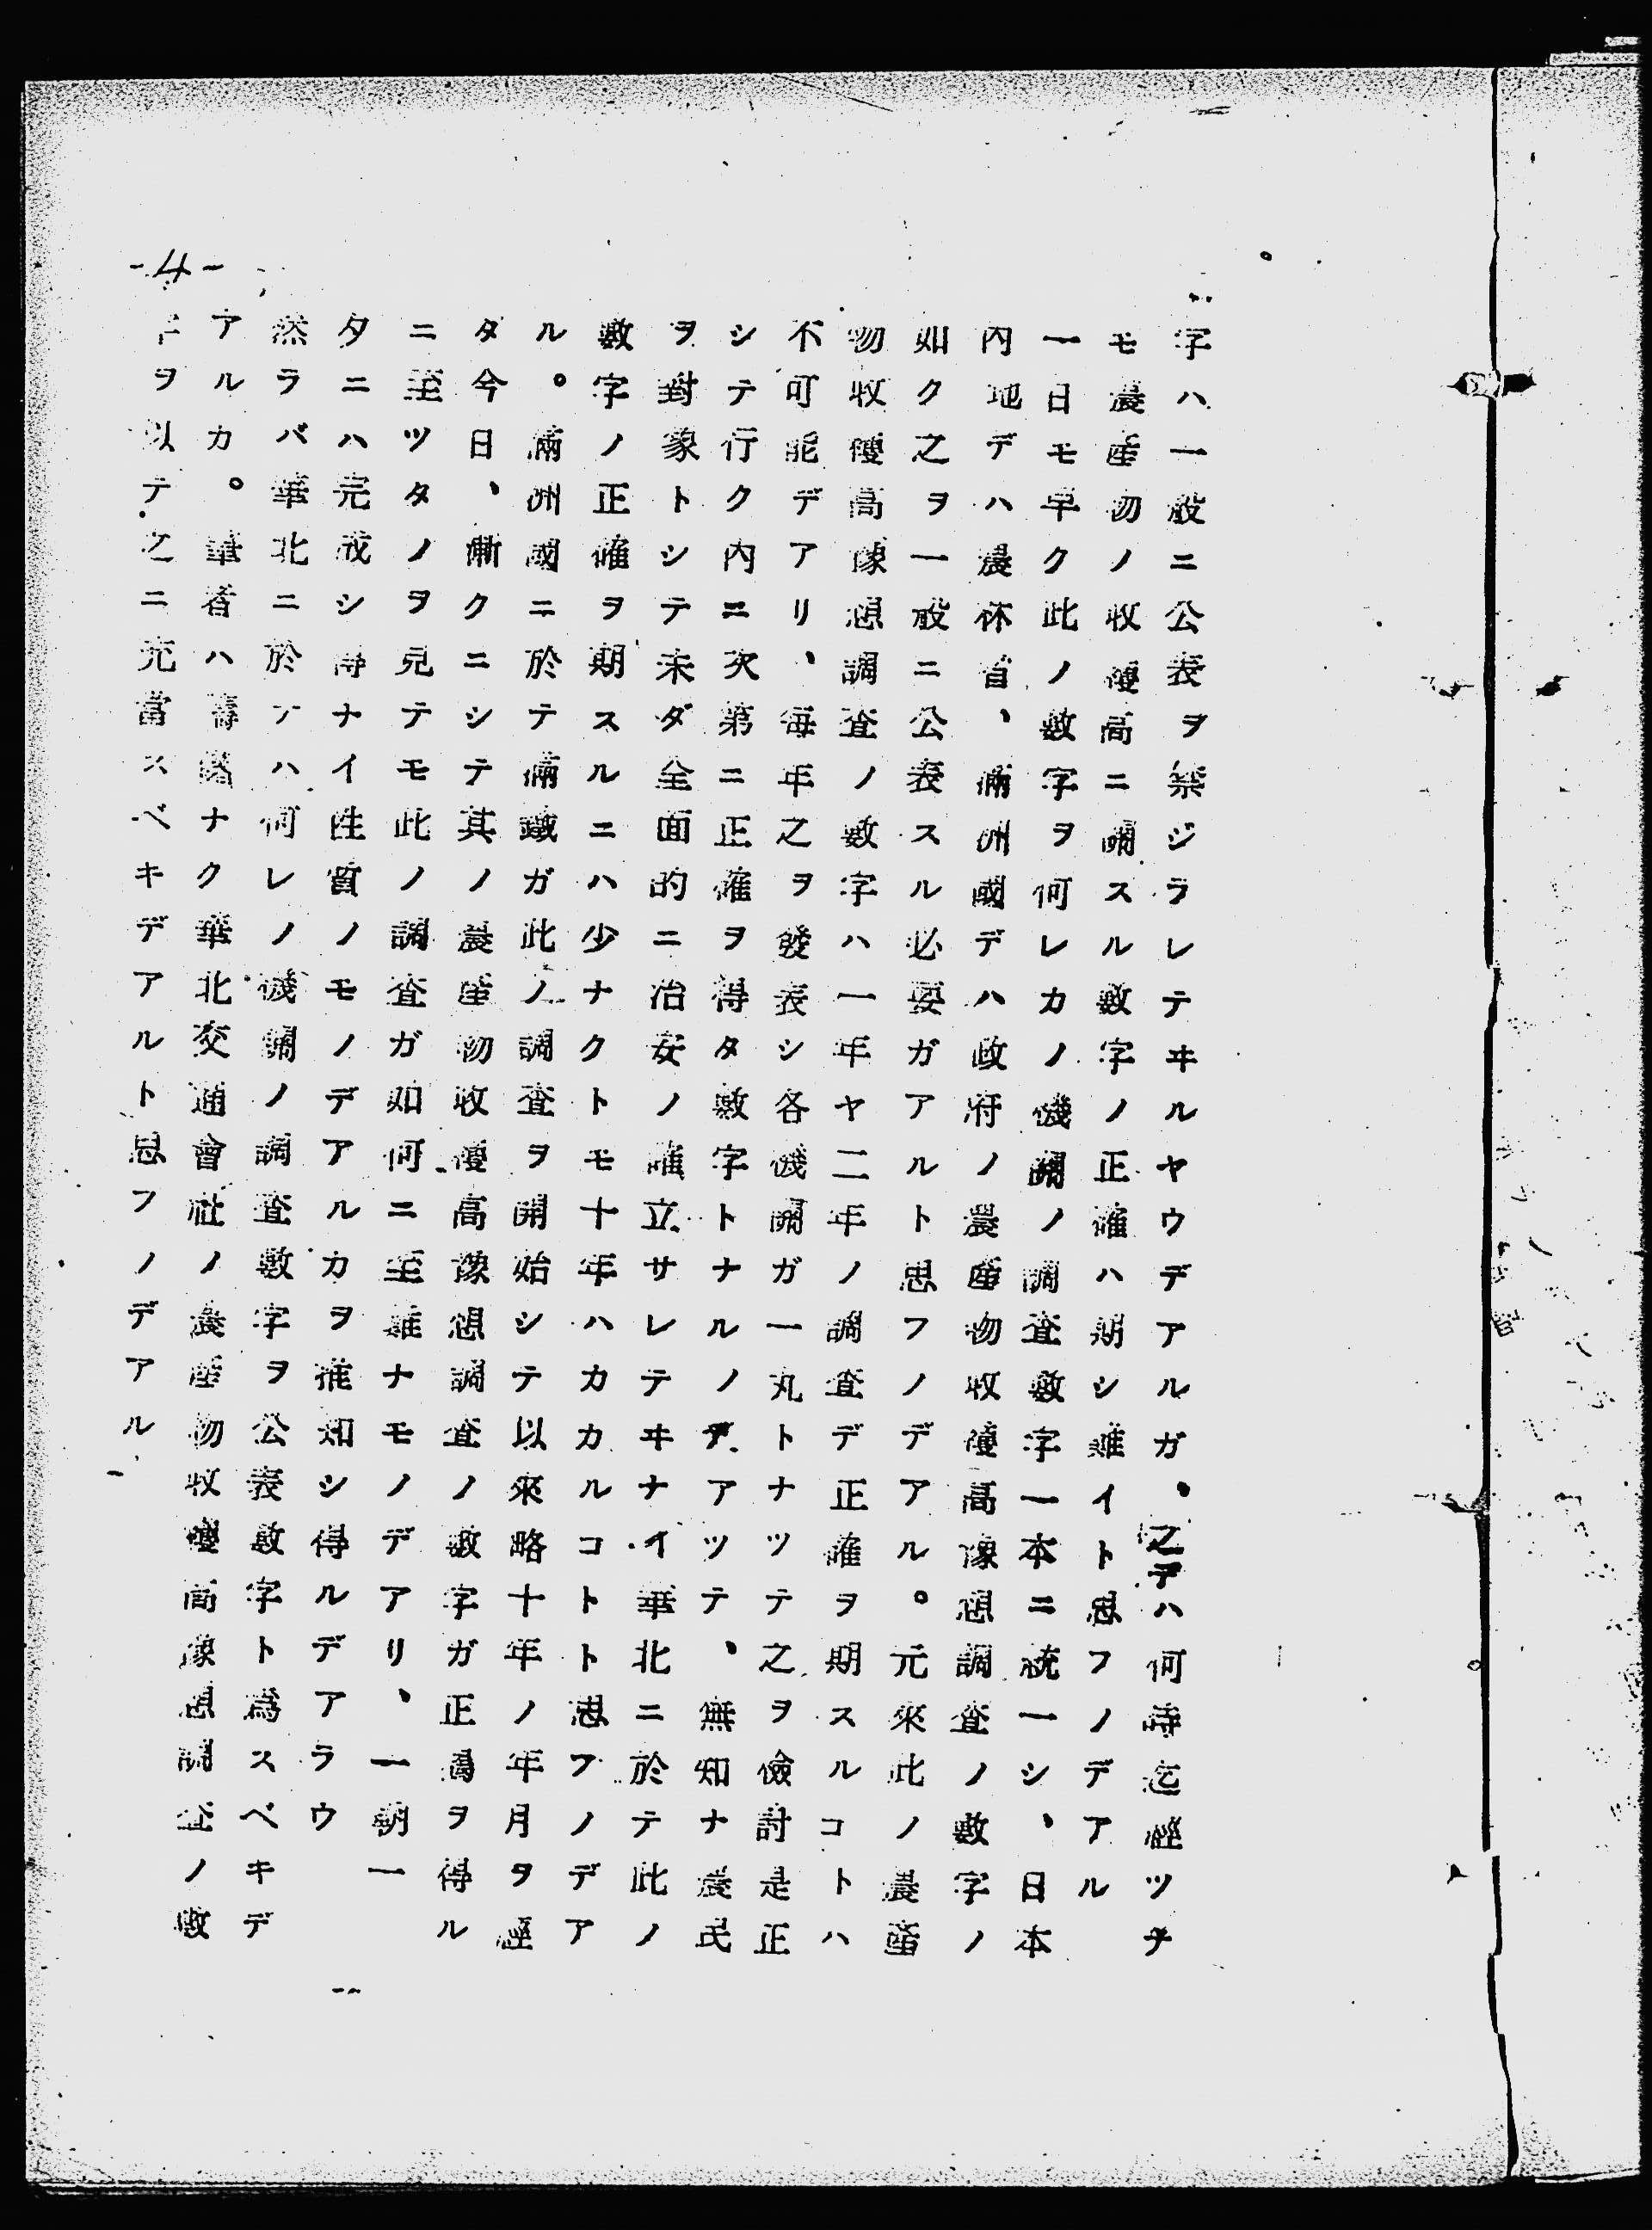 字ハ一般ニ公表ヲ禁ジラレテヰルヤウデアルガ、之デハ何時迄經ツテ
モ農産物ノ收穫高ニ關スル數字ノ正確ハ期シ難イト思フノデアル
一日モ早ク此ノ數字ヲ何レカノ機關ノ調査數字一本ニ統一シ、日本
內地デハ農林省、滿洲國デハ政府ノ農産物收穫高豫想調査ノ數字ノ
如ク之ヲ一般ニ公表スル必要ガアルト思フノデアル。元來此ノ農産
物收穫高豫想調査ノ數字ハ一年ヤ二年ノ調査デ正確ヲ期スルコトハ
不可能デアリ、每年之ヲ發表シ各機關ガ一丸トナツテ之ヲ檢討是正
シテ行ク內ニ次第ニ正確ヲ得タ數字トナルノデアツテ、無知ナ農民
ヲ對象トシテ未ダ全面的ニ治安ノ確立サレテヰナイ華北ニ於テ此ノ
數字ノ正確ヲ期スルニハ少ナクトモ十年ハカカルコトト思フノデア
ル。滿洲國ニ於テ滿鐵ガ此ノ調査ヲ開始シテ以來略十年ノ年月ヲ經
タ今日、漸クニシテ其ノ農産物收穫高豫想調査ノ數字ガ正鵠ヲ得ル
ニ至ツタノヲ見テモ此ノ調査ガ如何ニ至難ナモノデアリ、一朝一
夕ニハ完成シ得ナイ性質ノモノデアルカヲ推知シ得ルデアラウ
然ラバ華北ニ於テハ何レノ機關ノ調査數字ヲ公表數字ト爲スベキデ
アルカ。筆者ハ躊躇ナク華北交通會社ノ農産物收穫高豫想調査ノ數
字ヲ以テ之ニ充當スベキデアルト思フノデアル
-4-